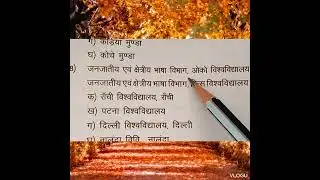 ग) कोड़िया मुण्डा
घ) कोचे मुण्डा
जनजातीय एवं क्षेत्रीय भाषा विभाग, ओको विश्वविद्यालय
जनजातीय एवं क्षेत्रीय भाषा विभाग, विश्वविद्यालय
क) राँची विश्वविद्यालय, राँची
ख) पटना विश्वविद्यालय
ग) दिल्ली विश्वविद्यालय, दिल्ली
घ) नालंदा विवि, नालंदा
VLOGU